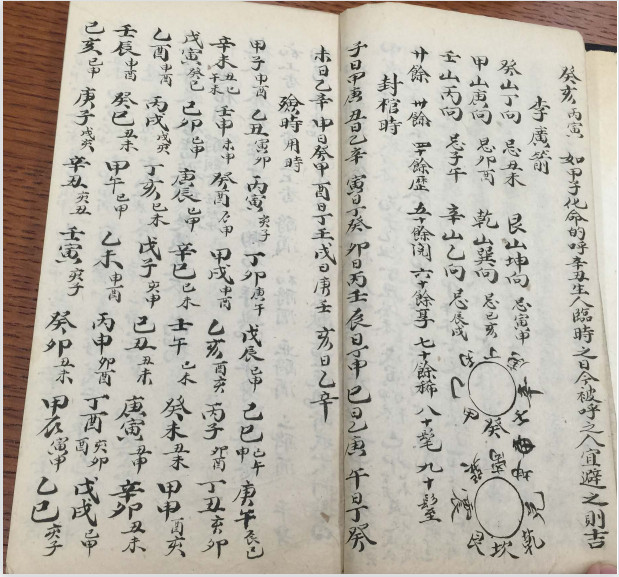 癸亥 丙寅 如甲子化命的呼辛丑生人臨時之日今被呼之人宜避之則吉
李廣箭
癸山丁向 忌丑未 艮山坤向 忌寅甲
甲山庚向 忌卯酉 乾山巽向 忌巳亥
壬山丙向 忌子午 辛山乙向 忌辰戌
癸
乾 坎 艮 震 巽
廿餘 卅餘 餘歷 五十餘閱 六十餘享 七十餘稀 八十耄 九十
封棺時
子日甲庚 丑日乙辛 寅日丁癸 卯日丙壬 辰日丁甲 巳日乙庚 午日丁癸
未日乙辛 申日癸甲 酉日丁壬 戌日庚壬 亥日乙辛
殮時用時
甲子申酉 乙丑寅卯 丙寅亥子 丁卯庚午 戊辰巳甲 己巳 庚午辰巳
辛未 壬申未甲 癸酉巳甲 甲戌申酉 乙亥酉亥 丙子卯酉 丁丑亥卯
戊寅癸巳 己卯巳甲 庚辰巳甲 辛巳巳未 壬午巳未 癸未丑未 甲申酉亥
乙酉申酉 丙戌戌亥 丁亥巳未 戊子寅甲 己丑丑未 庚寅丑甲 辛卯丑未
壬辰申酉 癸巳丑未 甲午巳甲 乙未申酉 丙申卯酉 丁酉亥卯 戊戌巳甲
己亥巳甲 庚子戌亥 辛丑亥丑 壬寅亥子 癸卯丑未 甲辰寅甲 乙巳亥子